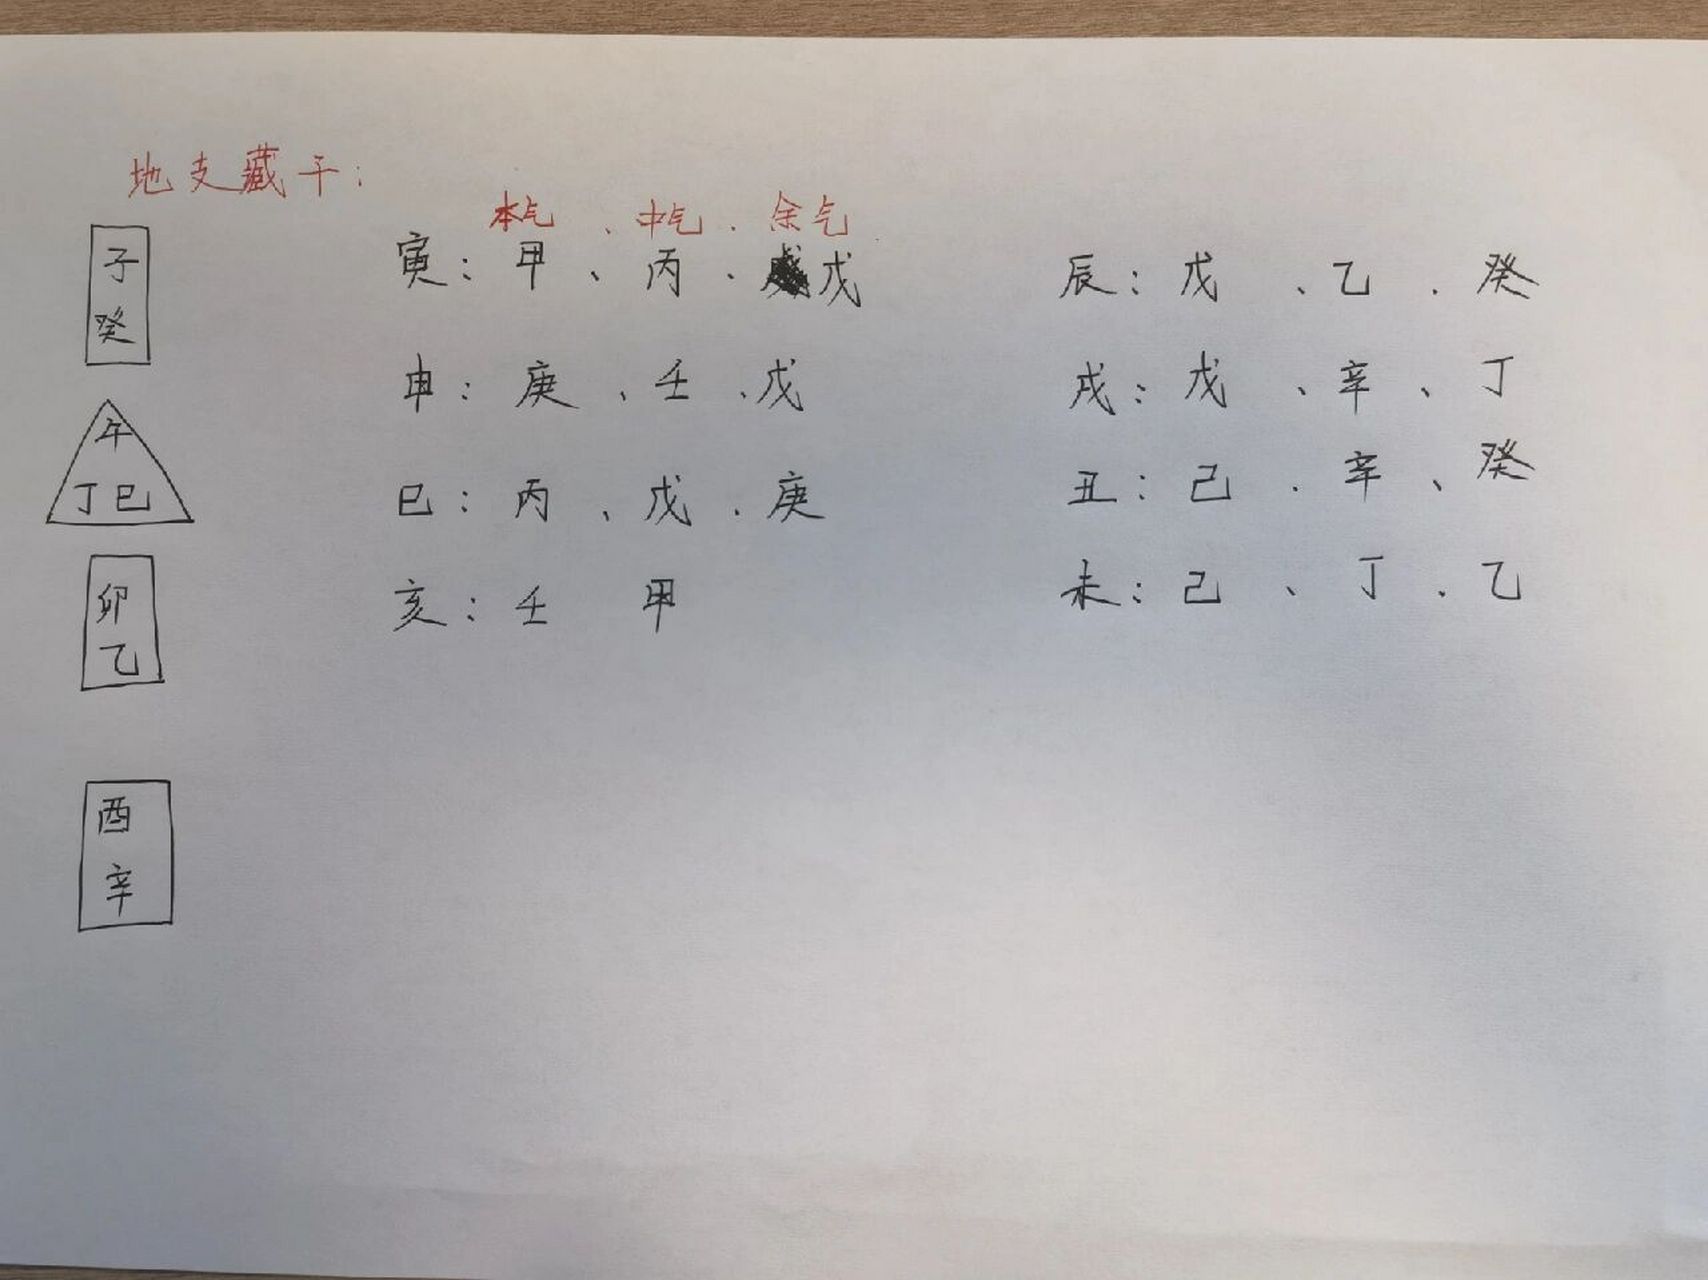 地支藏干:
本气、中气、余气
子
癸
午
丁巳
卯
乙
酉
辛
寅:甲、丙、戊
申:庚、壬、戊
巳:丙、戊、庚
亥:壬 甲
辰:戊、乙、癸
戌:戊、辛、丁
丑:己、辛、癸
未:己、丁、乙